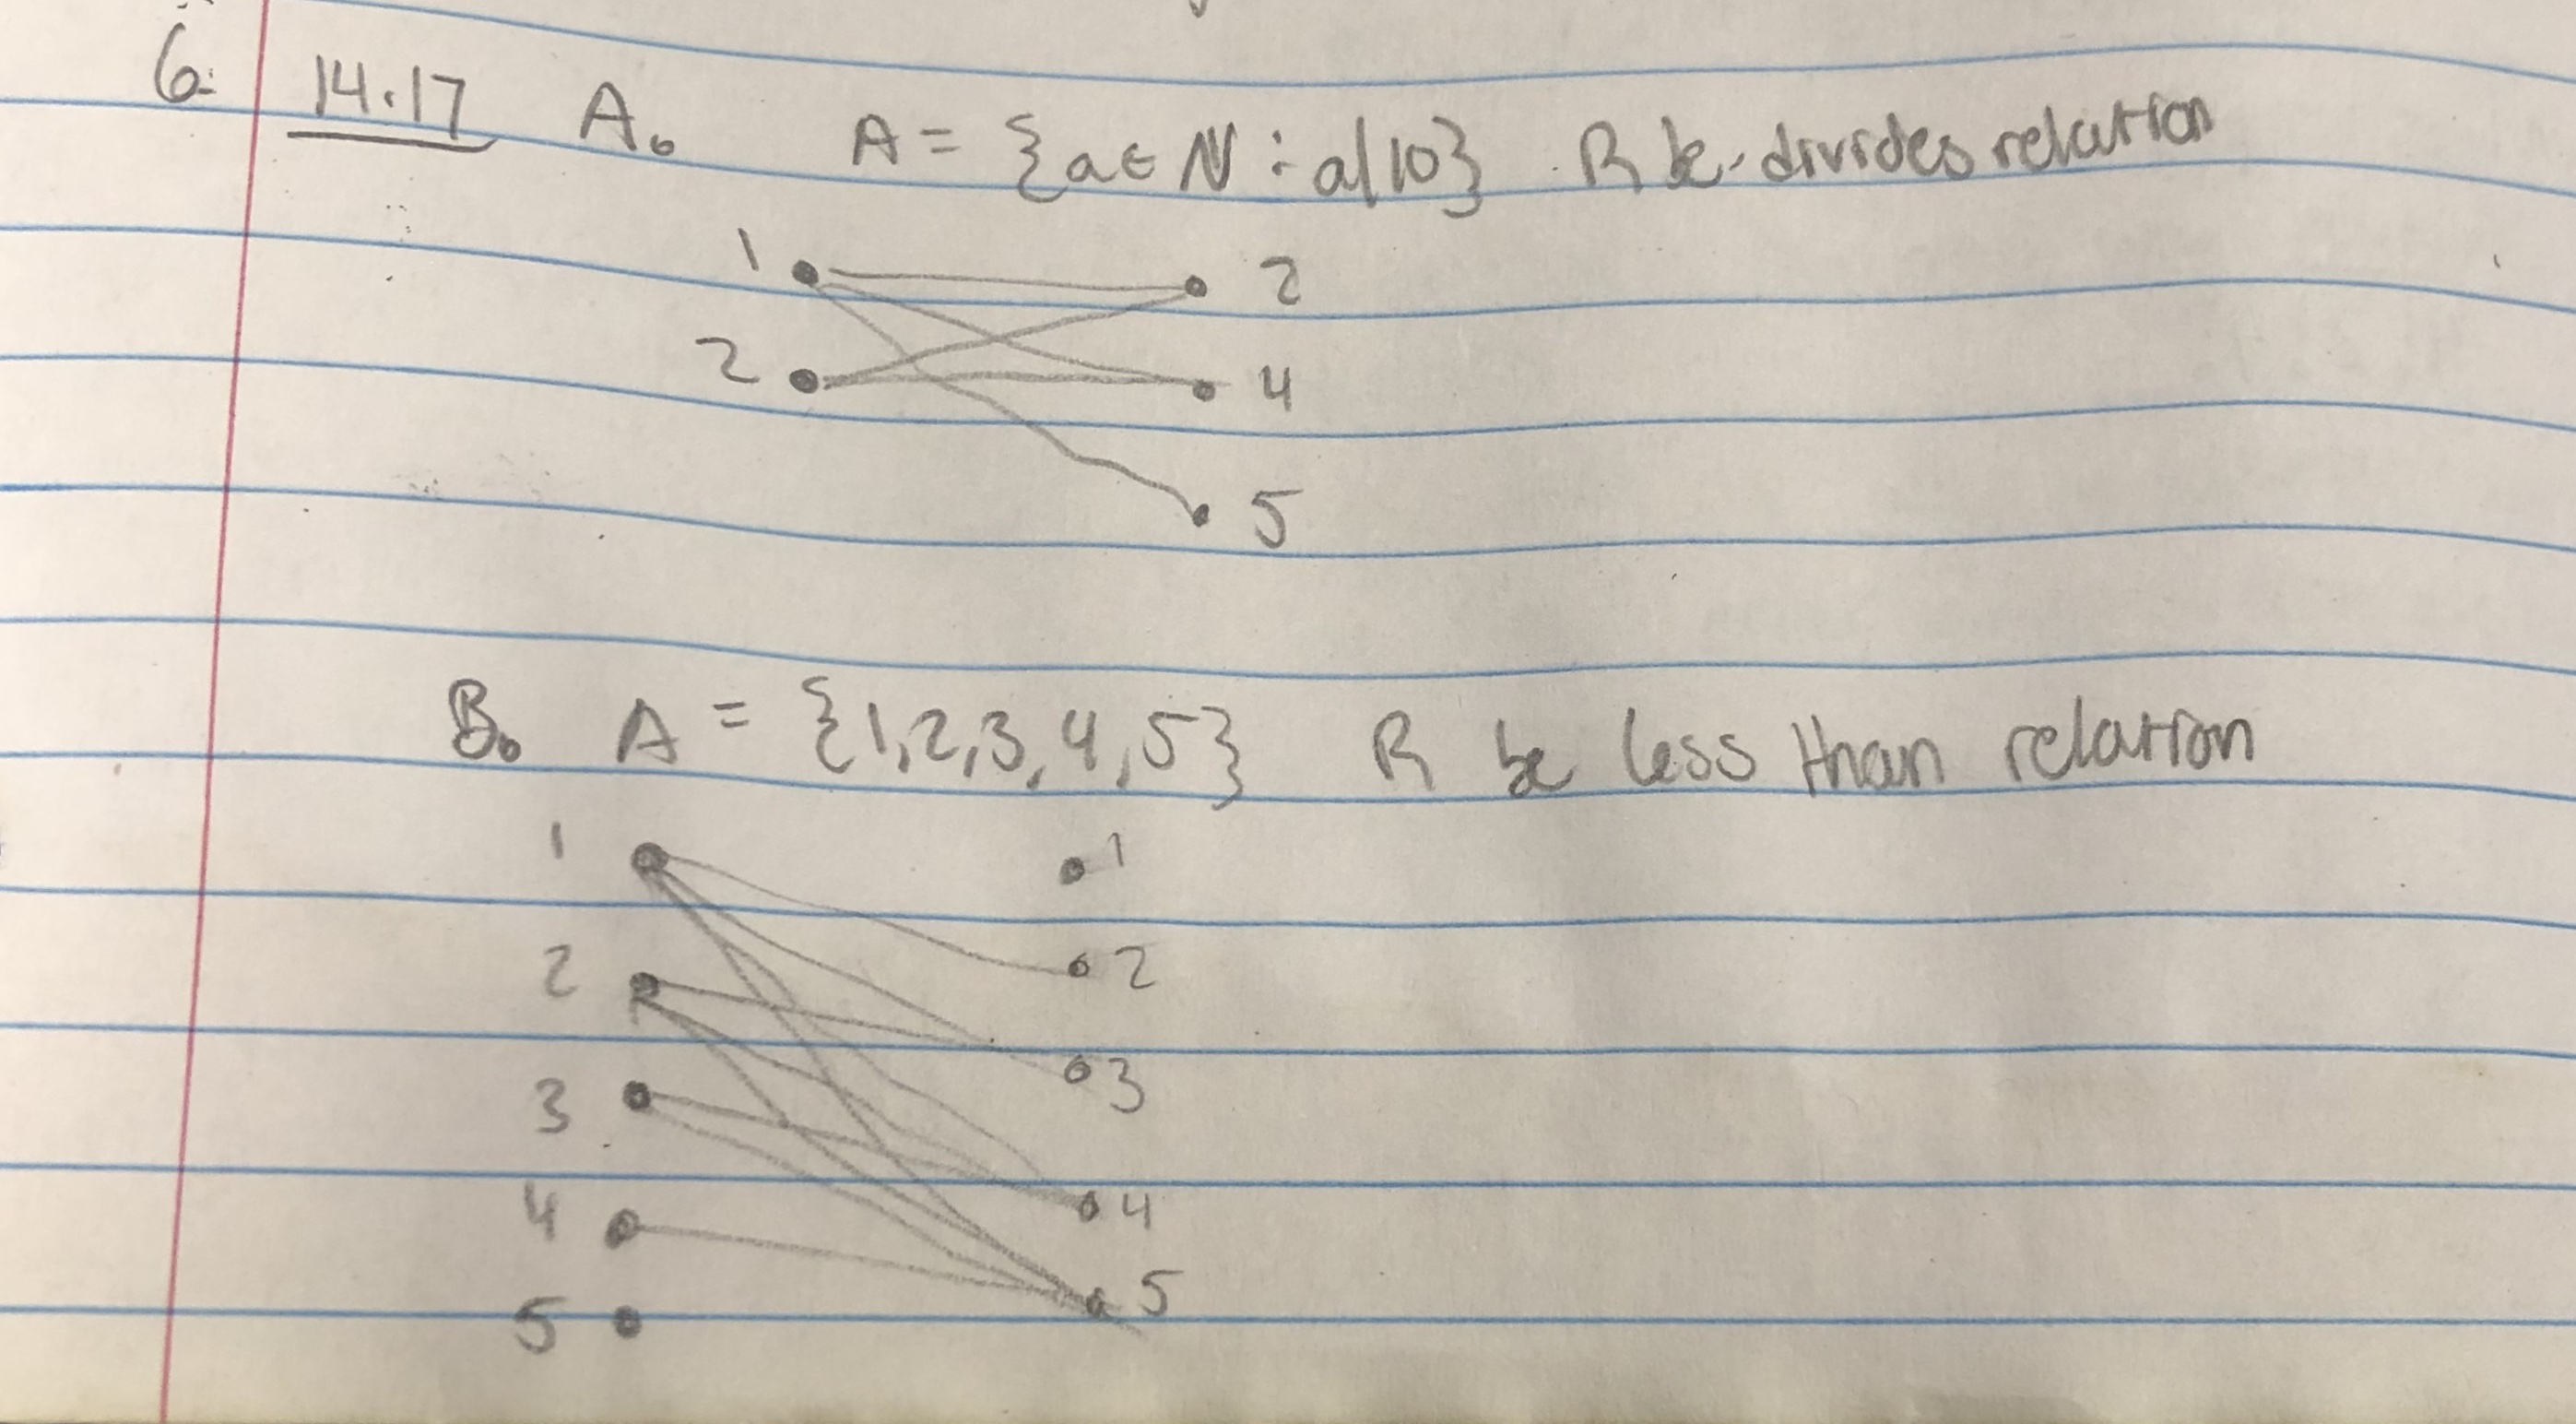 6. 14.17 A. A = {a ∈ ℕ : a|10} R be divides relation
1 2
2 4
5
B. A = {1,2,3,4,5} R be less than relation
1 1
2 2
3 3
4 4
5 5